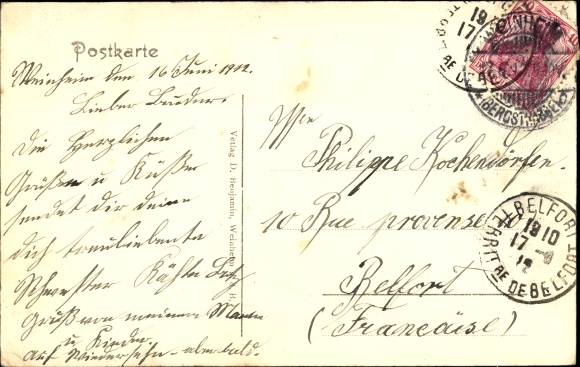 Postkarte
Weinheim den 16 Juni 1912.
Lieber Bruder.
Die Herzlichen
Grüßen u Küße
sendet dir deine
dich trauliebente
Schwester Käthe
Gruß von meinem Mann
u Kinder.
auf Wiedersehn - aber bald.
Verlag D. Benjamin, Weinheim
Philippe Kochendörfer.
10 Rue provense
Belfort
(Francaise)
WEINHEIM
(BERGSTRASSE)
BELFORT
18 10
17 - 6
12
TERRIT RE DE BELFORT